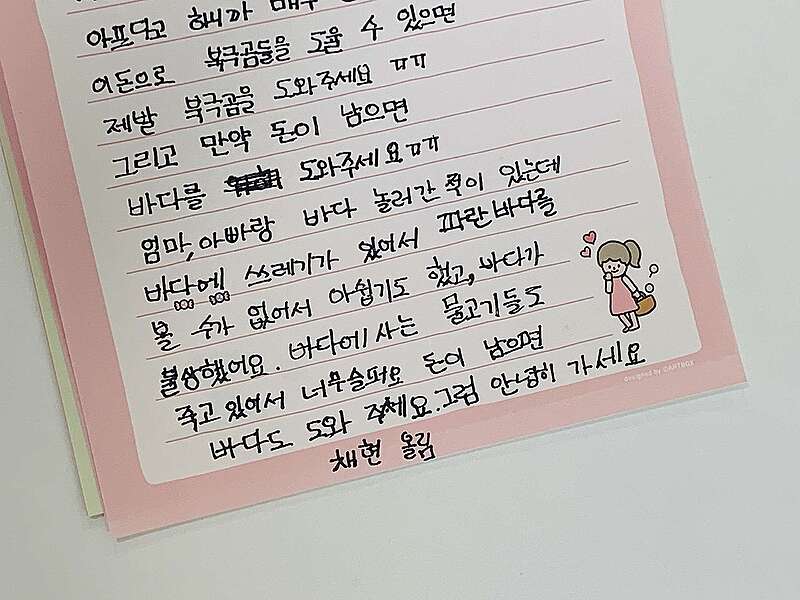 아프다고 하니까 매우
이돈으로 북극곰들을 도울 수 있으면
제발 북극곰을 도와주세요 ㅠㅠ
그리고 만약 돈이 남으면
바다를 도와주세요ㅠㅠ
엄마,아빠랑 바다 놀러간 적이 있는데
바다에 쓰레기가 있어서 파란바다를
볼 수가 없어서 아쉽기도 했고,바다가
불쌍했어요. 바다에 사는 물고기들도
죽고있어서 너무슬퍼요 돈이 남으면
바다도 도와 주세요.그럼 안녕히 가세요
채현 올림
designed by ©ARTBOX